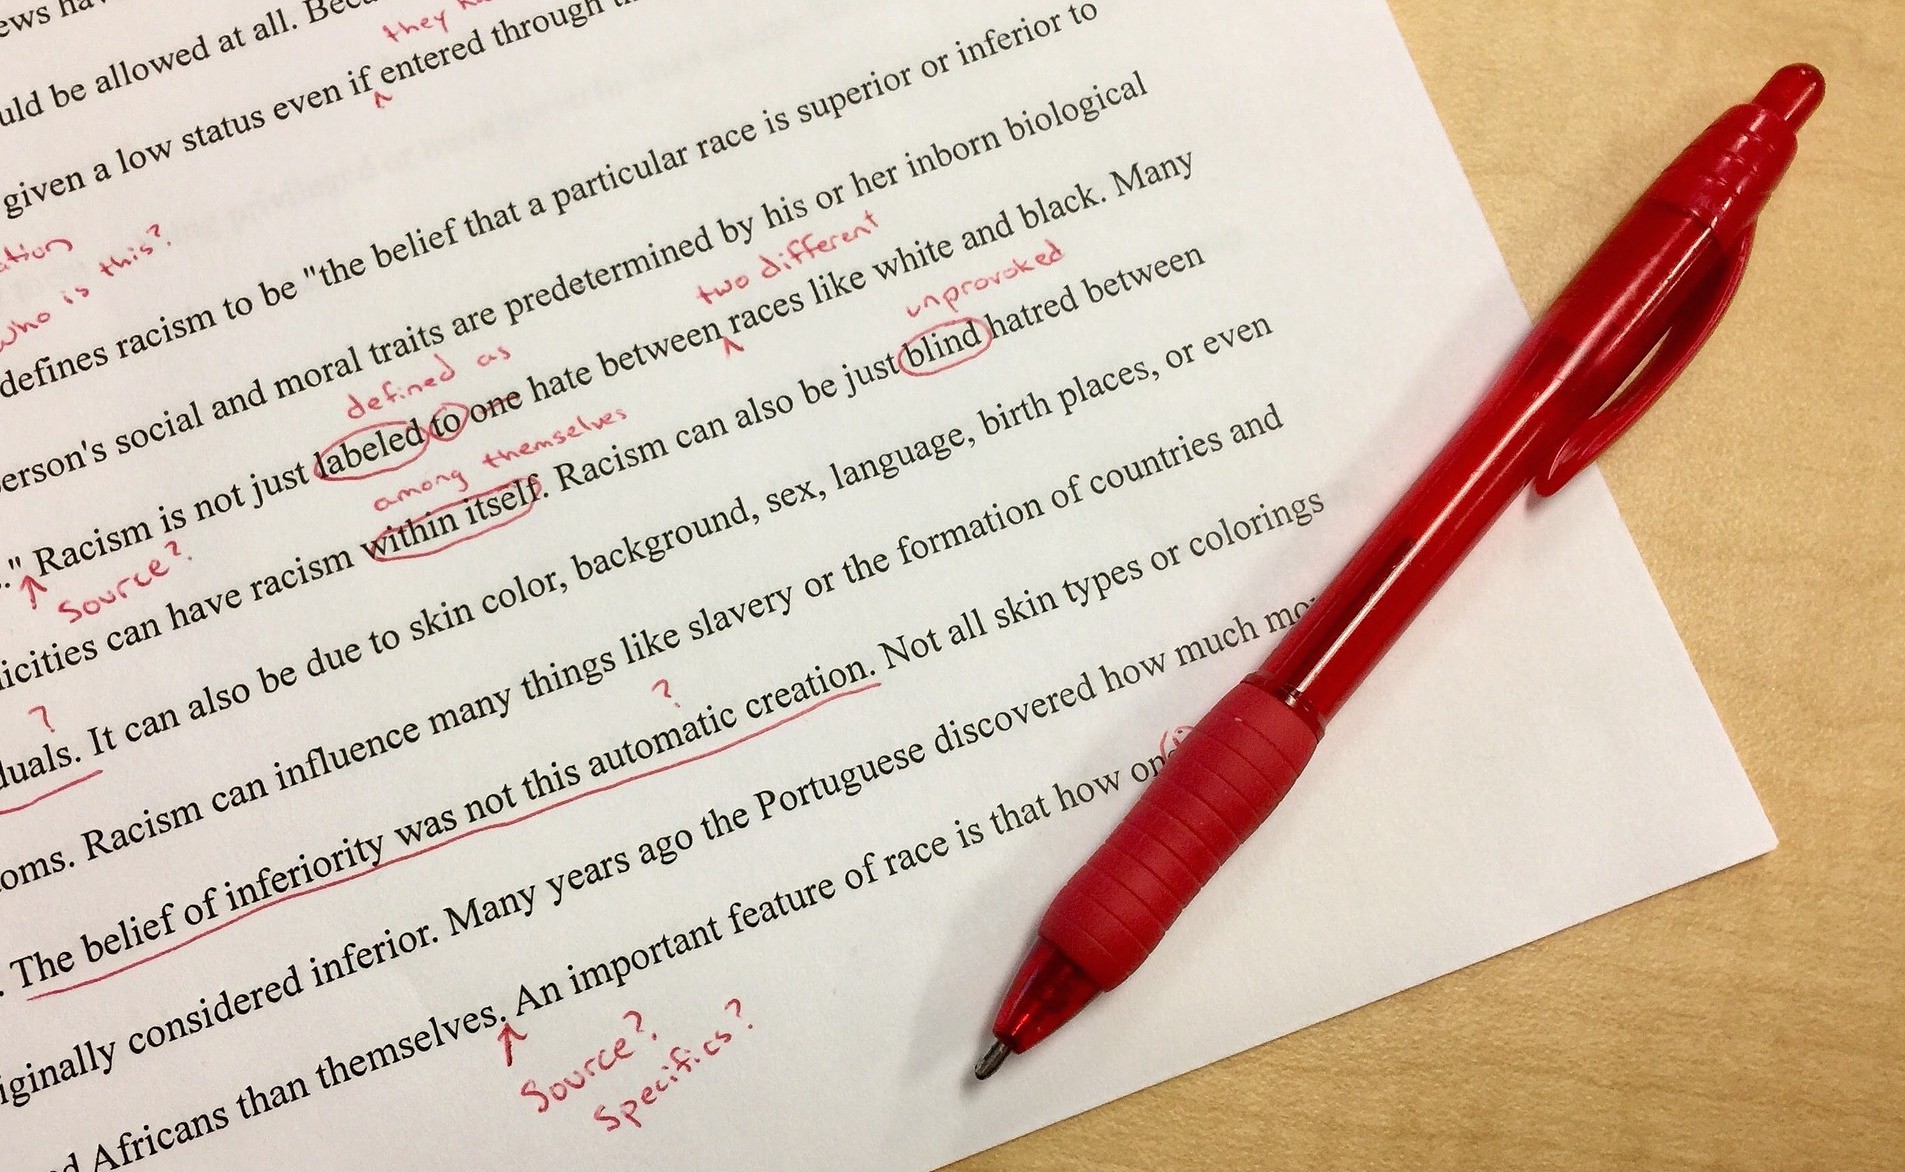 they
ould be allowed at all.
given a low status even if entered through
ation
who is this?
defines racism to be "the belief that a particular race is superior or inferior to
erson's social and moral traits are predetermined by his or her inborn biological
two different
defined as
." Racism is not just labeled to one hate between races like white and black. Many
Source?
among themselves
unprovoked
icities can have racism within itself. Racism can also be just blind hatred between
?
duals. It can also be due to skin color, background, sex, language, birth places, or even
oms. Racism can influence many things like slavery or the formation of countries and
?
. The belief of inferiority was not this automatic creation. Not all skin types or colorings
iginally considered inferior. Many years ago the Portuguese discovered how much
d Africans than themselves. An important feature of race is that how
Source?
Specifics?